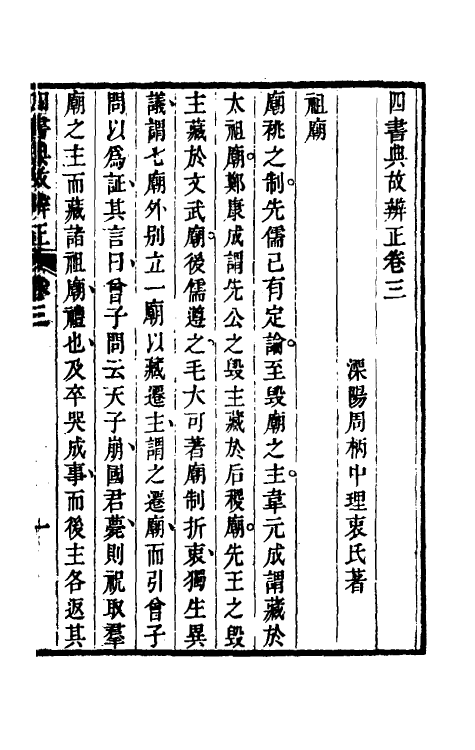 四書典故辨正卷三
溧陽周柄中理衷氏著
祖廟
廟祧之制。先儒已有定論。至毀廟之主。韋元成謂藏於
太祖廟。鄭康成謂先公之毀主藏於后稷廟。先王之毀
主藏於文武廟。後儒遵之。毛大可著廟制折衷、獨生異
議、謂七廟外別立一廟以藏遷主、謂之遷廟、而引曾子
問以爲証、其言曰、曾子問云天子崩、國君薨、則祝取羣
廟之主而藏諸祖廟、禮也、及卒哭成事、而後主各返其
四書典故辨正 卷三 一